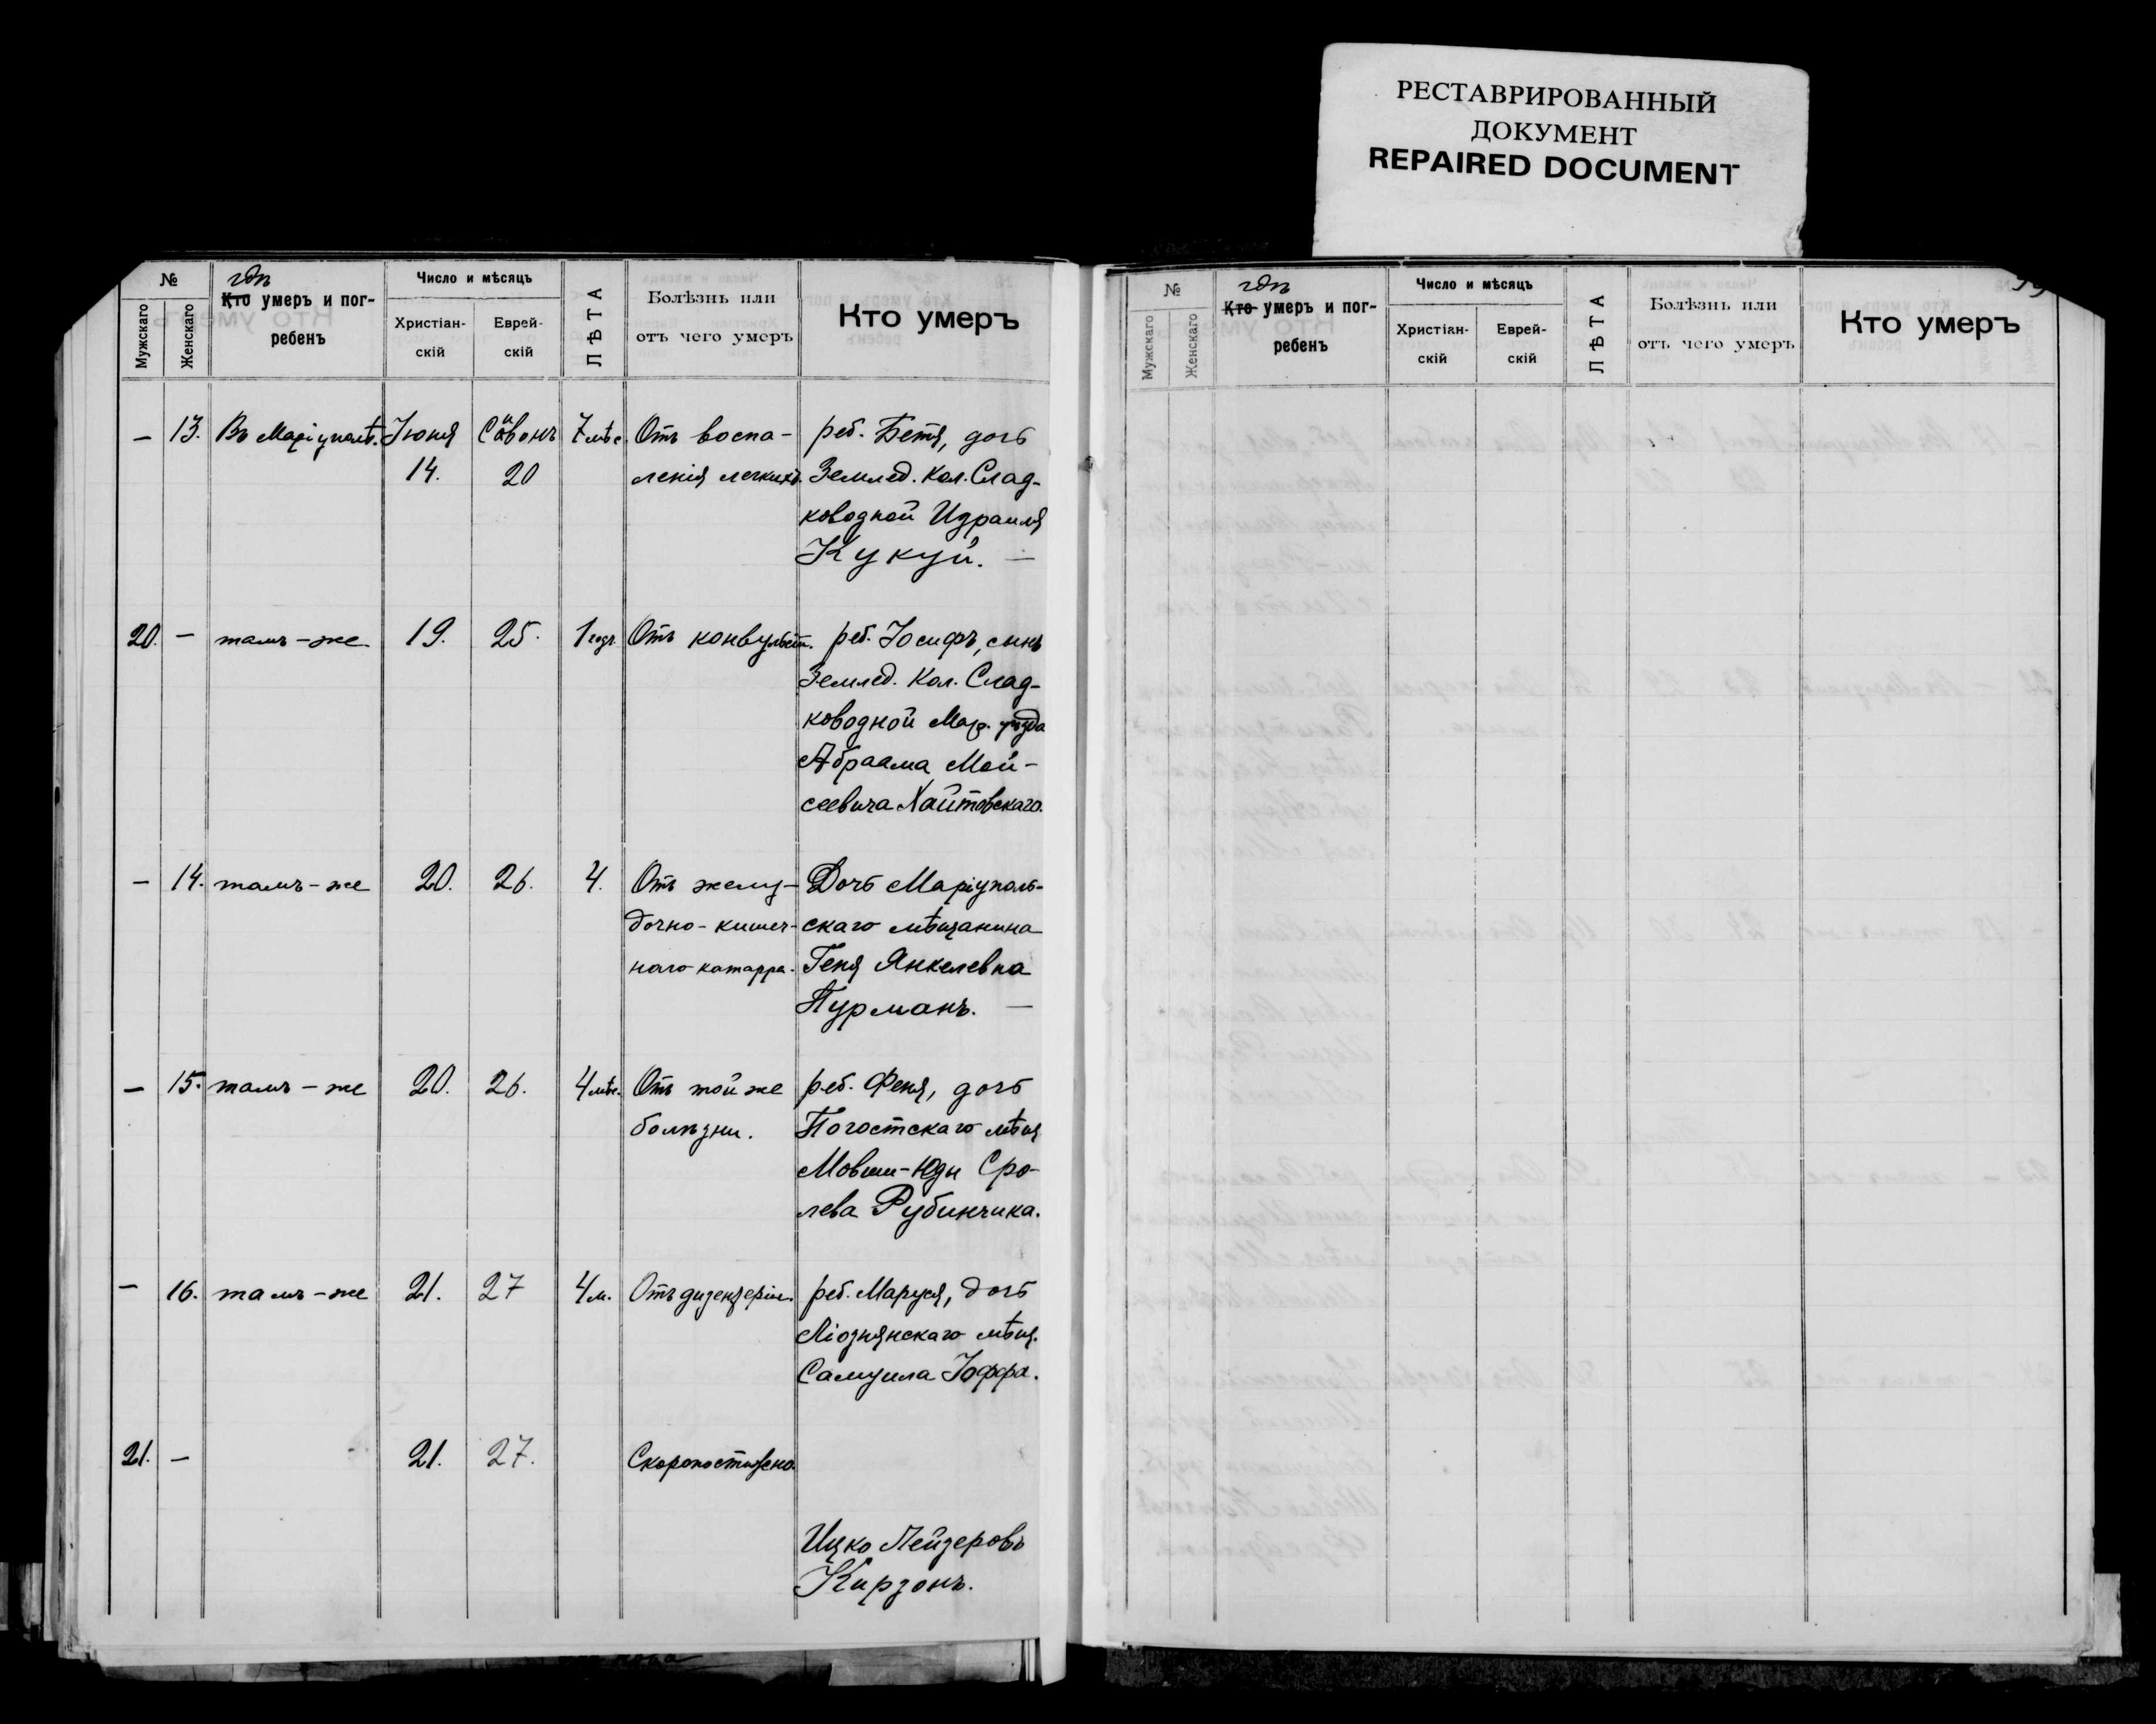 РЕСТАВРИРОВАННЫЙ
ДОКУМЕНТ
REPAIRED DOCUMENT
№
Мужскаго
Женскаго
гдѣ
Кто умеръ и пог-
ребенъ
Число и мѣсяцъ
Христіан-
скій
Еврей-
скій
ЛѢТА
Болѣзнь или
отъ чего умеръ
Кто умеръ
— 13. Въ Маріуполѣ. Іюня Сивонъ 7 мѣс. Отъ воспа- реб. Бетя, дочь
14. 20 ленія легкихъ. Землед. Кол. Слад-
ководной Израиля
Кукуй. —
20. — тамъ-же 19. 25. 1 годъ Отъ конвульсій. реб. Іосифъ, сынъ
Землед. Кол. Слад-
ководной Мар. уѣзда
Абраама Мои-
сеевича Хайтовскаго.
— 14. тамъ-же 20. 26. 4. Отъ желу- Дочь Маріуполь-
дочно-кишеч- скаго мѣщанина
наго катарра. Геня Янкелевна
Пурманъ. —
— 15. тамъ-же 20. 26. 4 мѣс. Отъ той же реб. Феня, дочь
болѣзни. Погостскаго мѣщ.
Мовши-Юды Сро-
лева Рубинчика.
— 16. тамъ-же 21. 27 4 м. Отъ дизентеріи. реб. Маруся, дочь
Ліознянскаго мѣщ.
Самуила Іоффа.
21. — 21. 27. Скоропостижно.
Ицко Лейзеровъ
Кирзонъ.
№
Мужскаго
Женскаго
гдѣ
Кто умеръ и пог-
ребенъ
Число и мѣсяцъ
Христіан-
скій
Еврей-
скій
ЛѢТА
Болѣзнь или
отъ чего умеръ
Кто умеръ